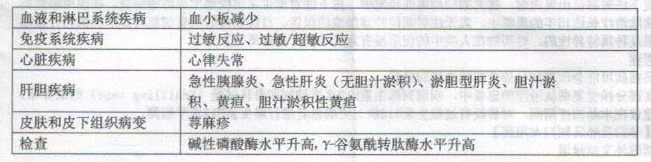 血液和淋巴系统疾病 血小板减少
免疫系统疾病 过敏反应、过敏/超敏反应
心脏疾病 心律失常
肝胆疾病 急性胰腺炎、急性肝炎（无胆汁淤积）、淤胆型肝炎、胆汁淤
积、黄疸、胆汁淤积性黄疸
皮肤和皮下组织病变 荨麻疹
检查 碱性磷酸酶水平升高，γ-谷氨酰转肽酶水平升高